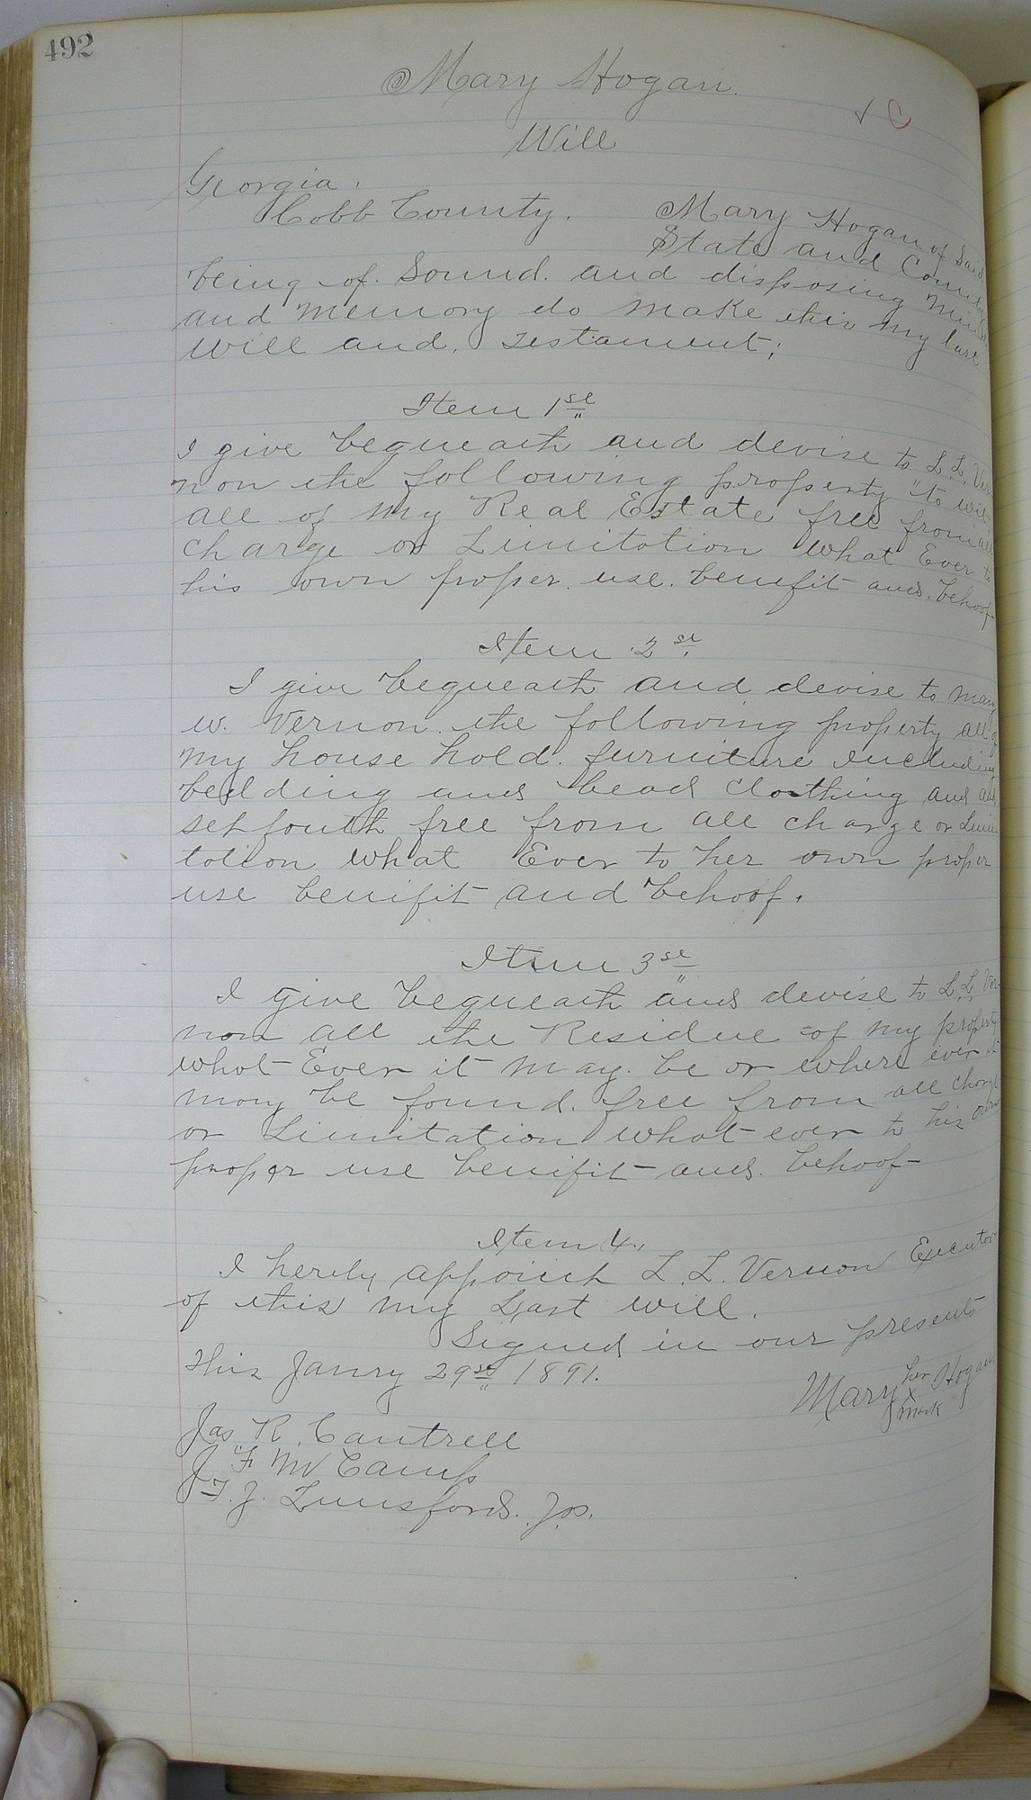 492
Mary Hogan.
Will
Georgia.
Cobb County. Mary Hogan of Said
State and County
being of Sound. and disposing mind
and memory do make this my last
will and, Testament;
Item 1st
I give bequeath and devise to L. L. Ver
non the following property "to wit
all of my Real Estate free from all
charge or Limitation what Ever to
his own proper. use. benefit and. behoof
Item 2st
I give bequeath and devise to Mary
W. Vernon. the following property all of
my house hold. furniture Including
bedding and bead clothing and
setfouth free from all charge or Limi
tation what Ever to her own proper
use benifit and behoof.
Item 3st
I give bequeath and devise to L. L. Ver
non all the Residue of my property
what Ever it may. be or where ever it
may be found. free from all charge
or Limitation what ever to his own
proper use benifit and. behoof
Item 4.,
I hereby appoint L. L. Vernon Executor
of this my Last will.
Signed in our presents
This Janry 29st 1891.
Mary her x mark Hogan
Jas R. Cantrell
J F McCamp
T. J. Lunsford. Jos.